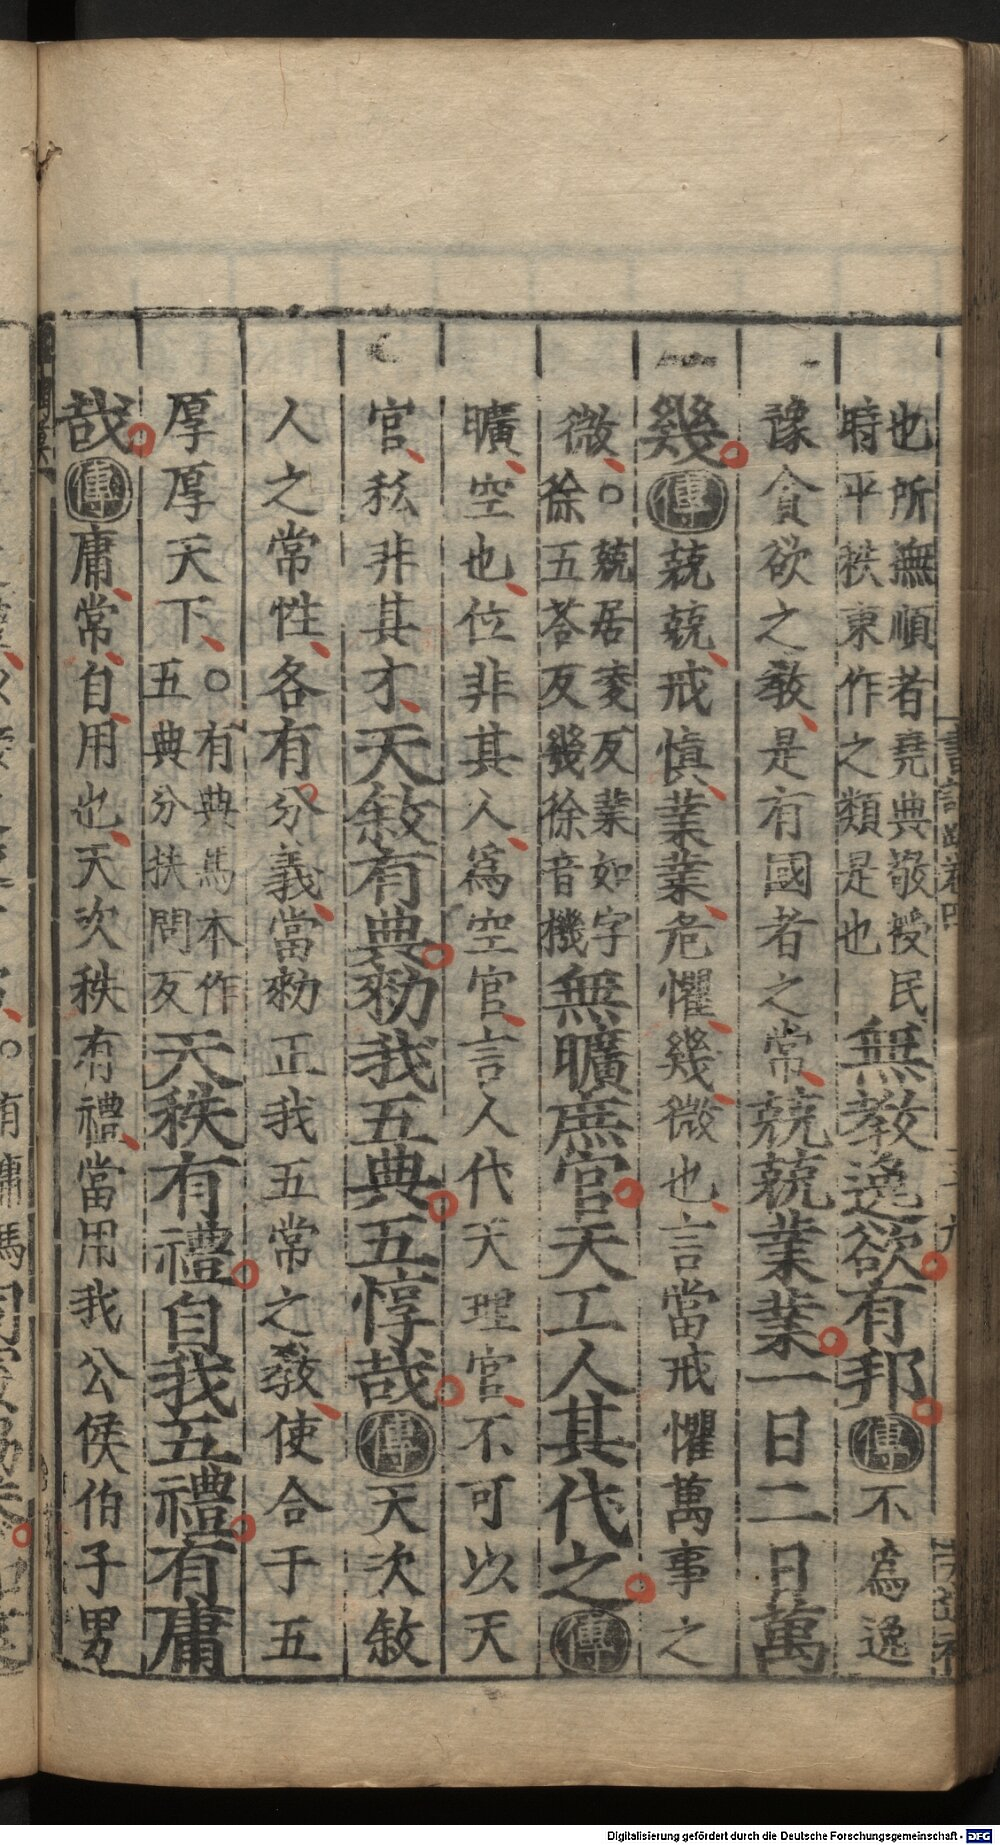 也所撫順者堯典敬授民
時平秩東作之類是也
無教逸欲有邦傳不爲逸
豫貪欲之教是有國者之常兢兢業業一日二日萬
幾傳兢兢戒慎業業危懼幾微也言當戒懼萬事之
微○兢居凌反業如字
徐五荅反幾徐音機
無曠庶官天工人其代之傳
曠空也位非其人爲空官言人代天理官不可以天
官私非其才天敘有典勑我五典五惇哉傳天次敘
人之常性各有分義當勑正我五常之教使合于五
厚厚天下○有典馬本作
五典分扶問反
天秩有禮自我五禮有庸
哉傳庸常自用也天次秩有禮當用我公侯伯子男
Digitalisierung gefördert durch die Deutsche Forschungsgemeinschaft - DFG